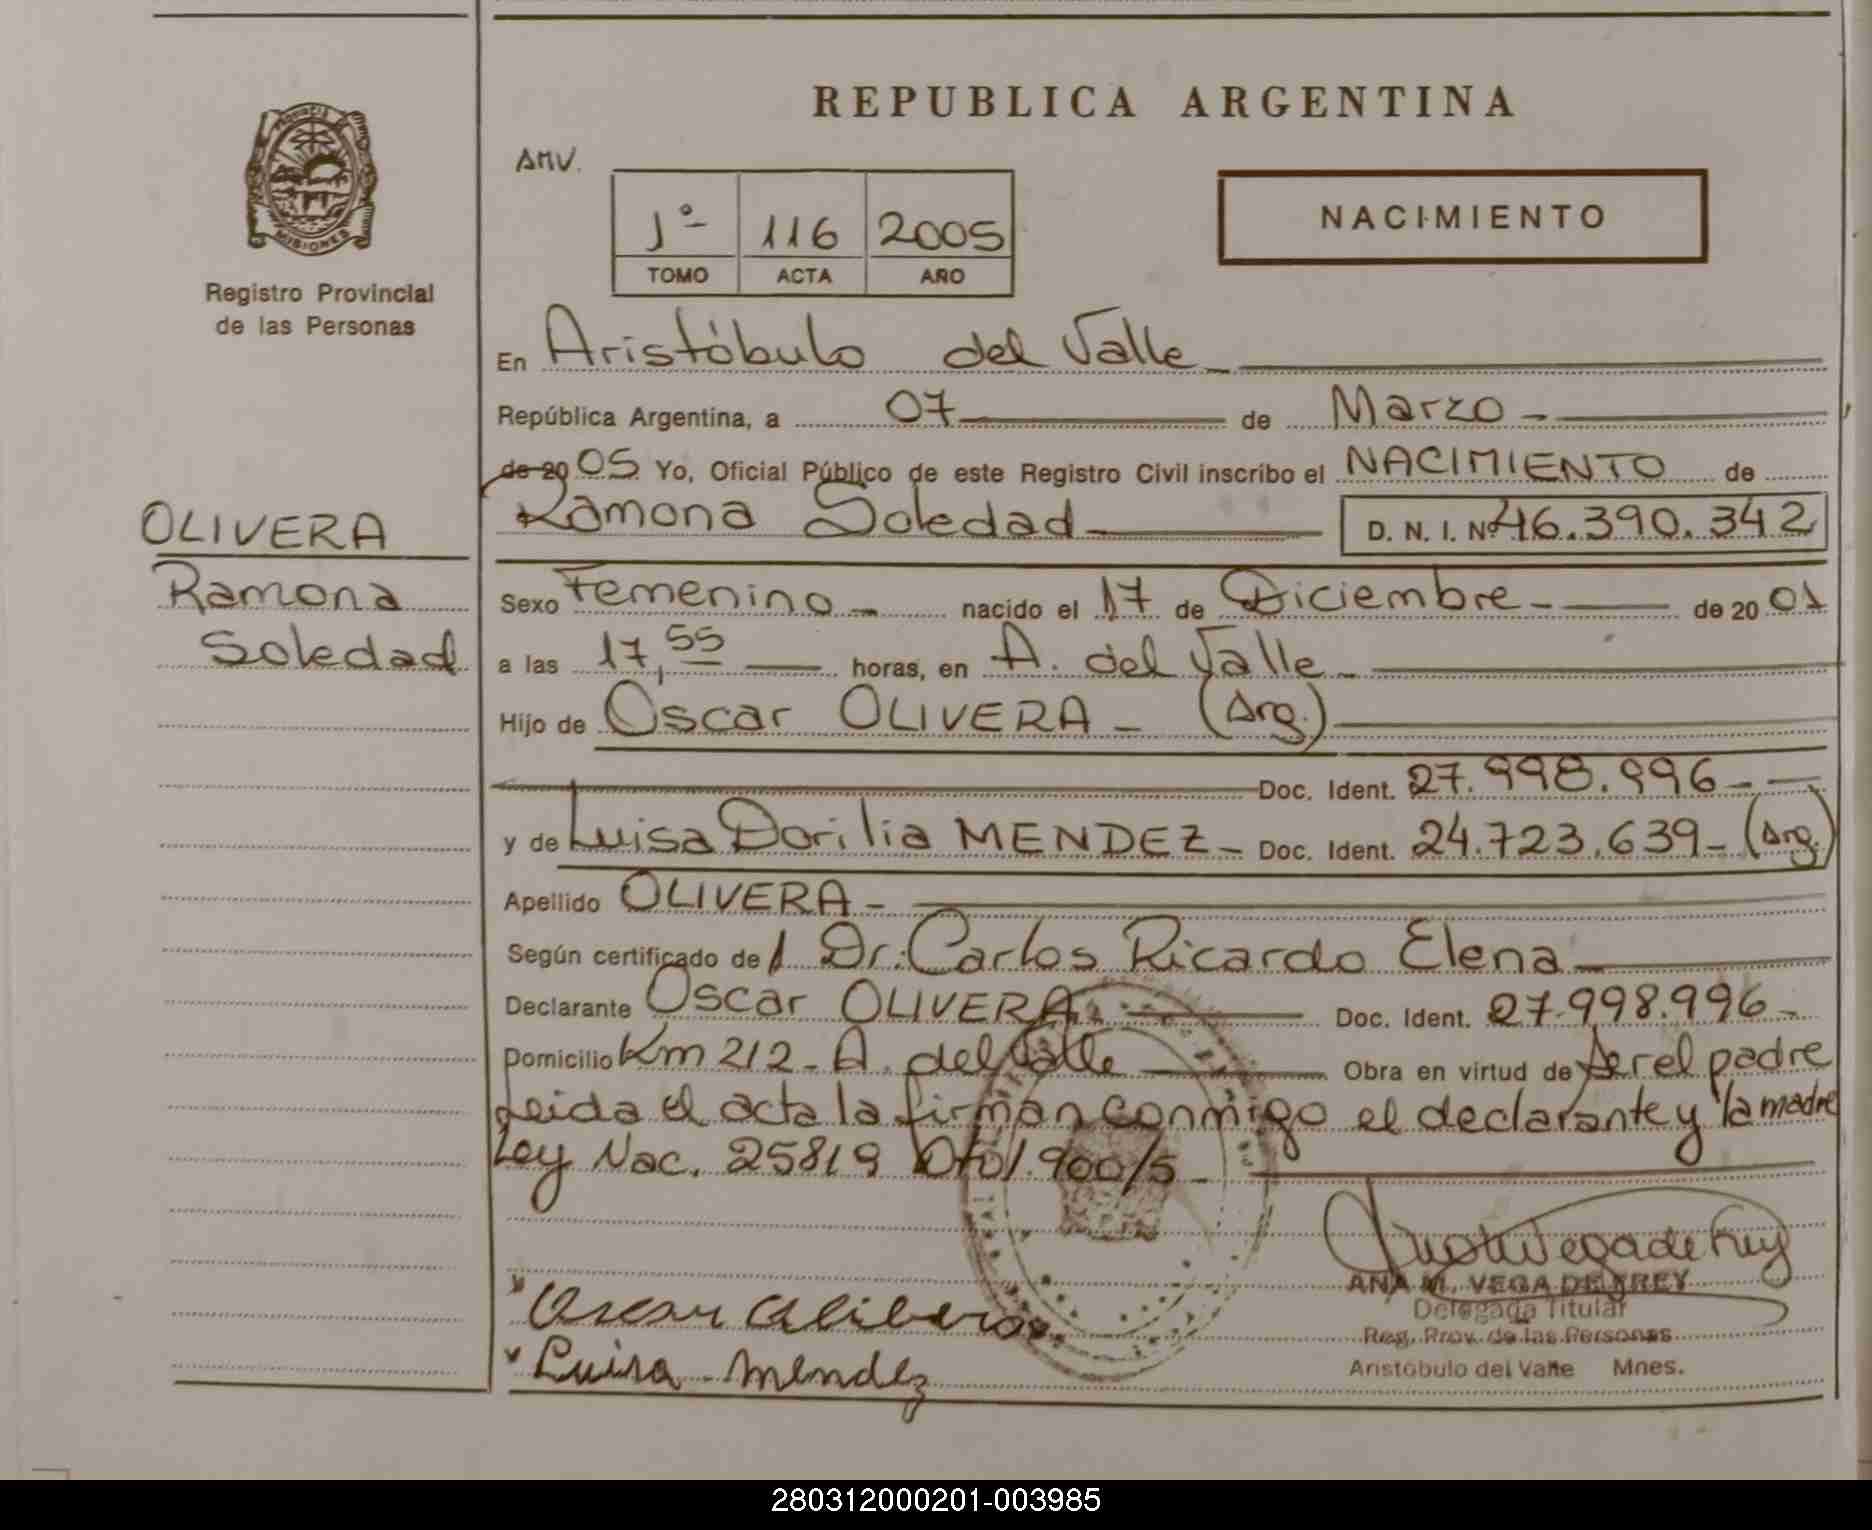 REPUBLICA ARGENTINA
AMV.
1º 116 2005
TOMO ACTA AÑO
NACIMIENTO
MISIONES
Registro Provincial
de las Personas
En Aristóbulo del Valle
República Argentina, a 07 de Marzo -
de 20 05 Yo, Oficial Público de este Registro Civil inscribo el NACIMIENTO de
OLIVERA
Ramona Soledad D. N. I. Nº 46.390.342
Ramona
Soledad
Sexo Femenino - nacido el 17 de Diciembre - de 20 01
a las 17,55 horas, en A. del Valle -
Hijo de Oscar OLIVERA - (Arg.)
Doc. Ident. 27.998.996 -
y de Luisa Dorilia MENDEZ - Doc. Ident. 24.723.639 - (Arg.)
Apellido OLIVERA -
Según certificado de Dr. Carlos Ricardo Elena
Declarante Oscar OLIVERA Doc. Ident. 27.998.996 -
Domicilio Km 212 - A. del Valle Obra en virtud de Ser el padre
Leida el acta la firman conmigo el declarante y la madre
Ley Nac. 25819 Dto 1.900/5 -
Luisa Mendez
ANA M. VEGA DE FREY
Delegada Titular
Reg. Prov. de las Personas
Aristóbulo del Valle Mnes.
280312000201-003985